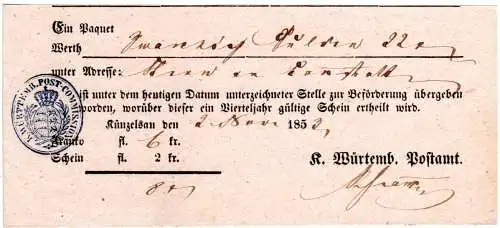 Ein Paquet
Werth Zwanzig Gulden 22
unter Adresse: in Cannstatt
ist unter dem heutigen Datum unterzeichneter Stelle zur Beförderung übergeben
worden, worüber dieser ein Vierteljahr gültige Schein ertheilt wird.
Künzelsau den 2. Nov. 1852
Franko fl. 6 kr.
Schein fl. 2 kr.
K. Würtemb. Postamt.
8 x
K. WÜRTTEMB. POST-COMMISSION